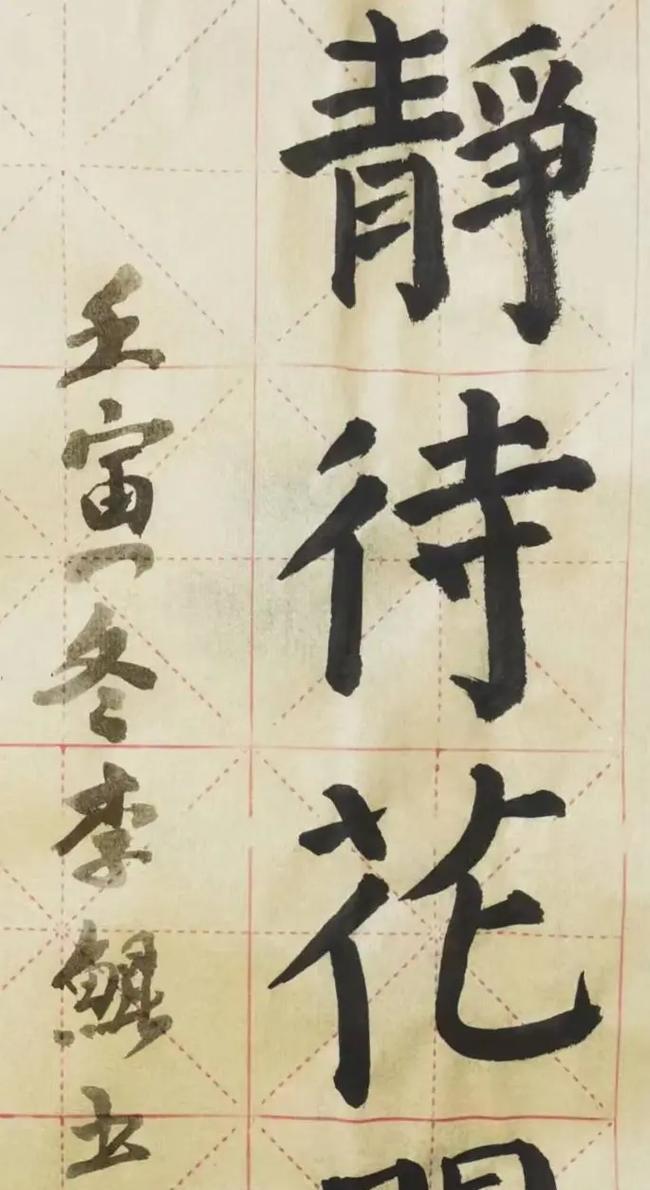 靜待花
壬寅冬李鯤书